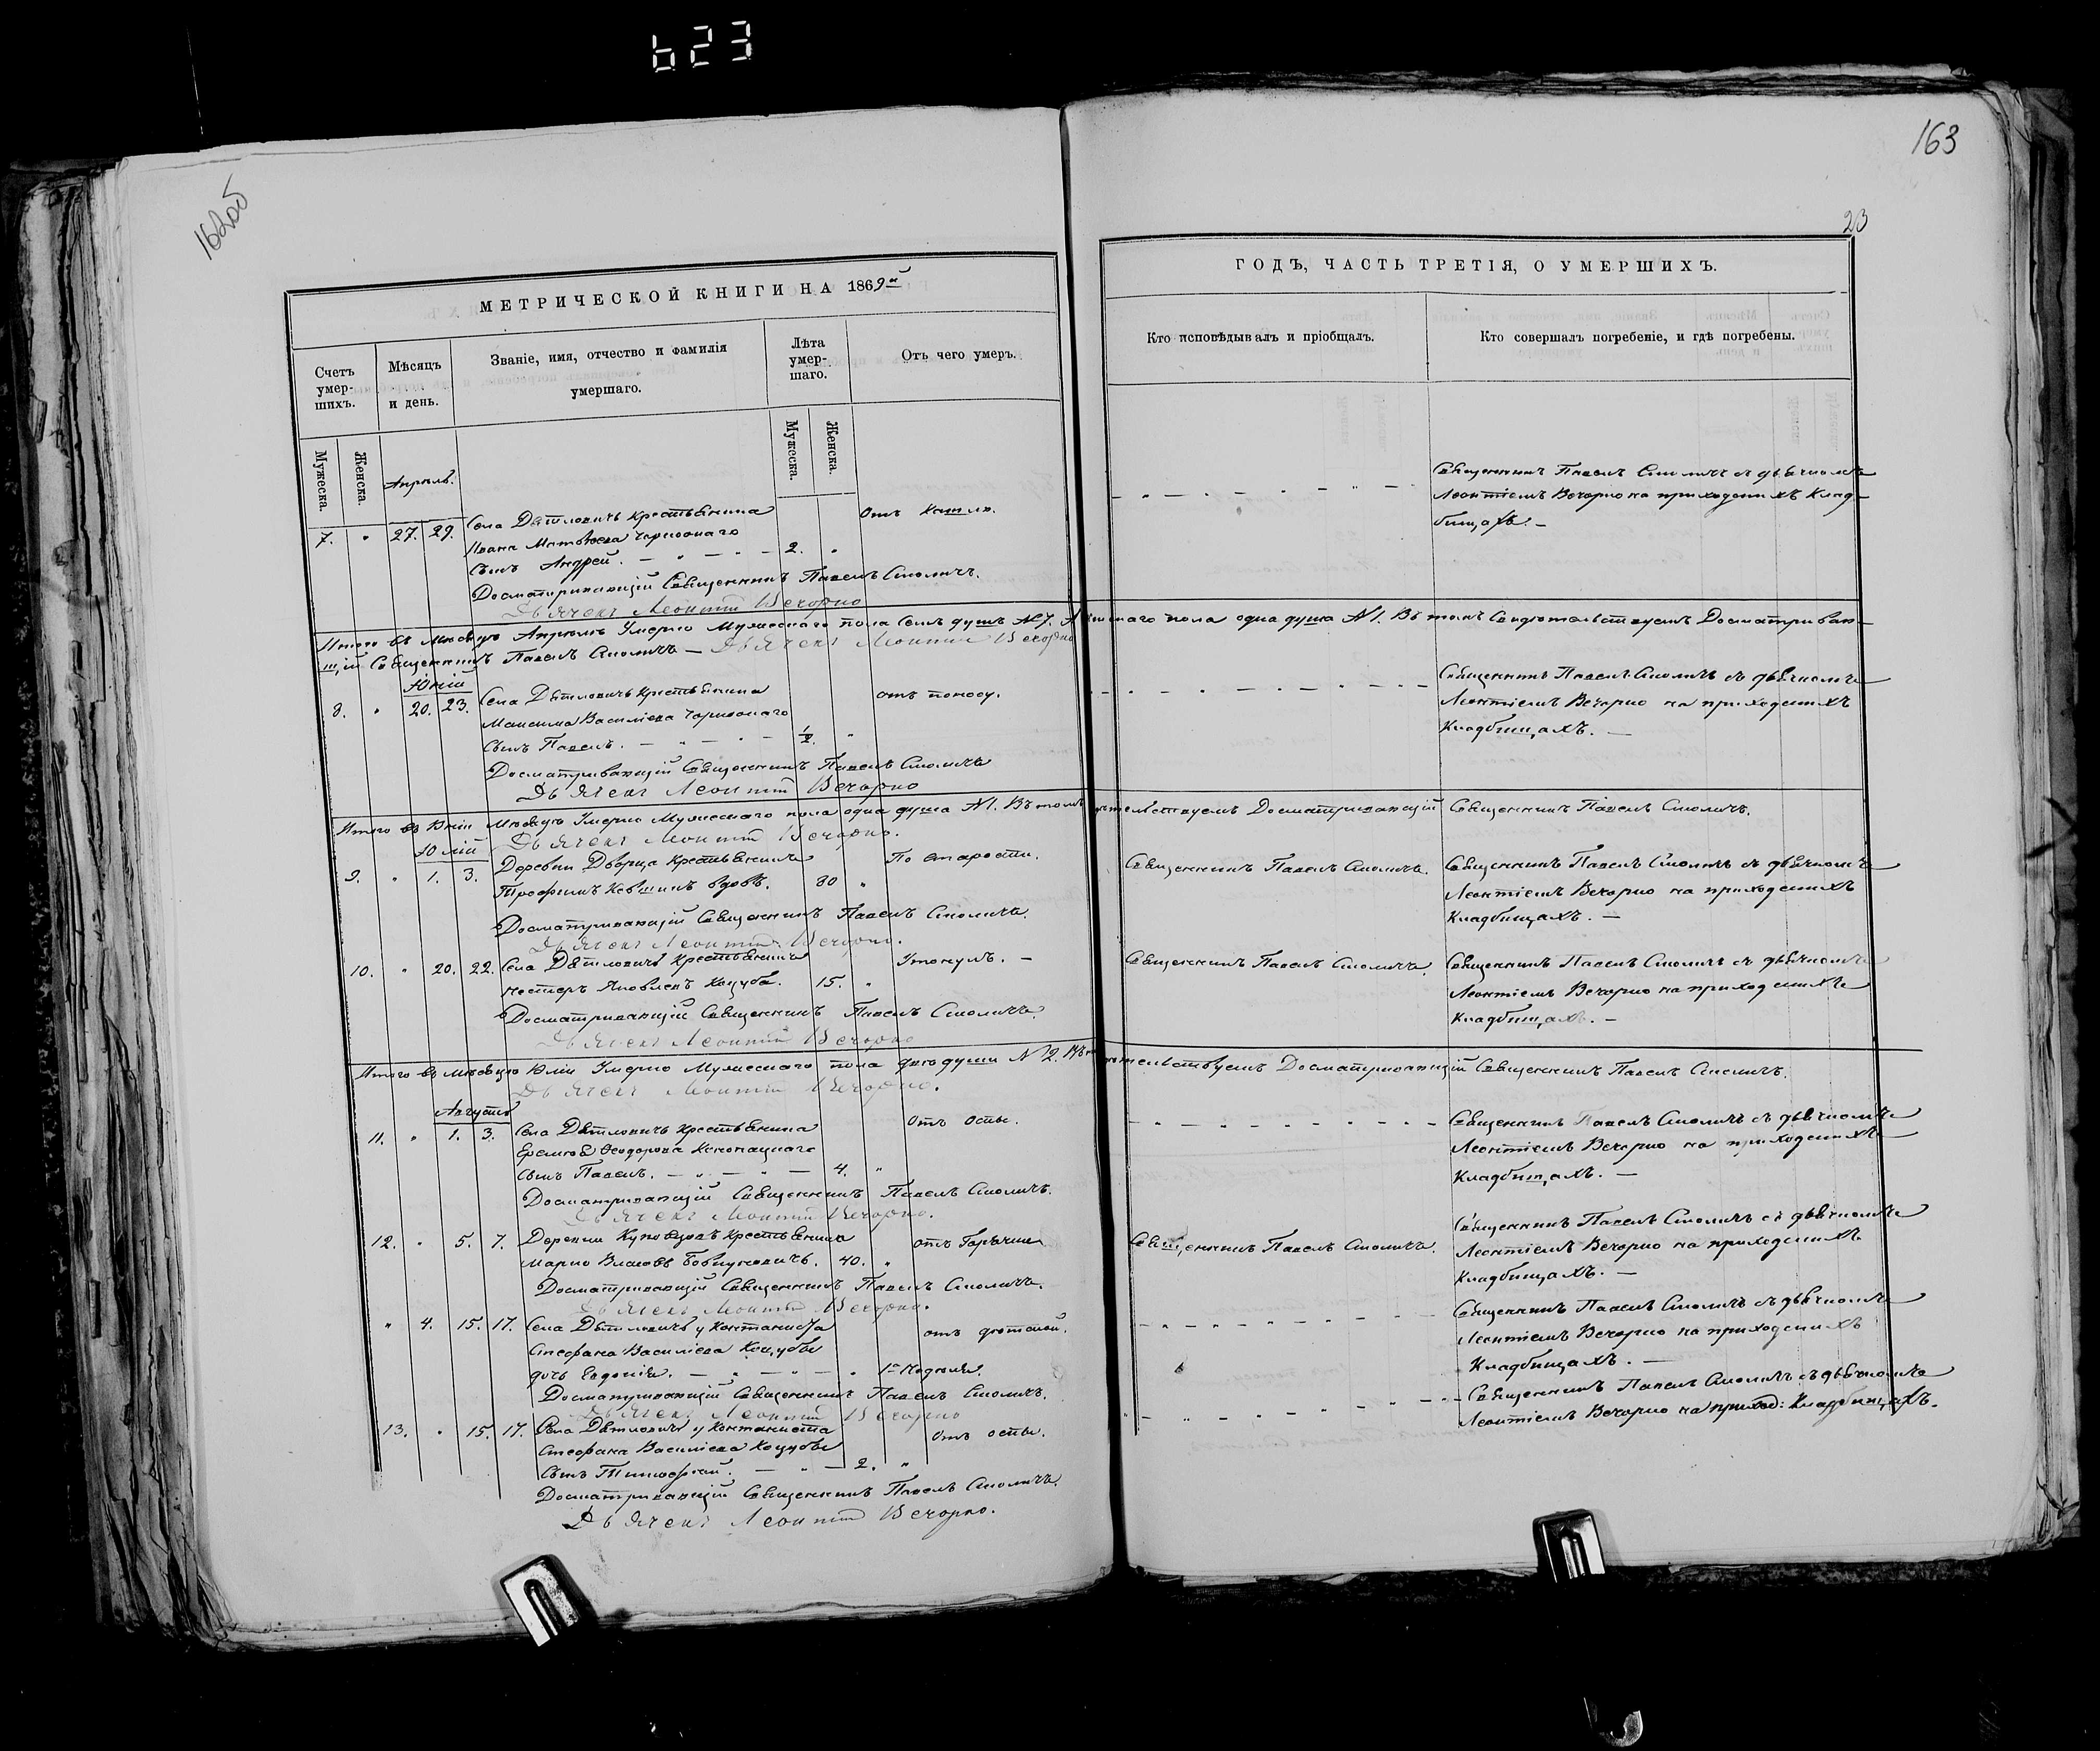 623
162об
163
23
МЕТРИЧЕСКОЙ КНИГИ НА 1869й
Счетъ умер-шихъ.
Мѣсяцъ и день.
Званіе, имя, отчество и фамилія умершаго.
Лѣта умер-шаго.
Отъ чего умеръ.
Мужеска.
Женска.
Мужеска.
Женска.
Апрѣль.
7. " 27. 29. Села Дѣтловичъ крестьянина
Отъ Кашлю.
Ивана Матвѣева
Сынъ Андрей. — " — " — 2. "
Досматривающій Священникъ Павелъ Смоличъ.
Дьячекъ Леонтій Вечорко
Итого въ Мѣсяцѣ Апрѣлѣ Умерло Мужескаго пола семь душъ №7. Женскаго пола одна душа №1. Въ томъ Свидѣтельствуемъ Досматриваю-
щій Священникъ Павелъ Смоличъ — Дьячекъ Леонтій Вечорко
Юній
8. " 20. 23. Села Дѣтловичъ Крестьянина
отъ поносу.
Максима Василіева
Сынъ Павелъ. — " — " — ½. "
Досматривающій Священникъ Павелъ Смоличъ
Дьячекъ Леонтій Вечорко
Итого въ Юніи Мѣсяцѣ Умерло Мужескаго пола одна душа №1. Въ томъ Досматривающій Священникъ Павелъ Смоличъ.
Дьячекъ Леонтій Вечорко.
Юлій
9. " 1. 3. Деревни Дворца Крестьянинъ
По старости.
Трофимъ вдовъ. 80 "
Досматривающій Священникъ Павелъ Смоличъ.
Дьячекъ Леонтій Вечорко.
10. " 20. 22. Села Дѣтловичъ Крестьянинъ
Утонулъ. —
Нестеръ Яковлевъ Коцуба. 15. "
Досматривающій Священникъ Павелъ Смоличъ.
Дьячекъ Леонтій Вечорко
Итого въ мѣсяцѣ Юліи Умерло Мужескаго пола двѣ души №2. Досматривающій Священникъ Павелъ Смоличъ.
Дьячекъ Леонтій Вечорко.
Августъ
11. " 1. 3. Села Дѣтловичъ Крестьянина
Отъ оспы.
Еремѣя Ѳеодорова
Сынъ Павелъ. — " — " — 4. "
Досматривающій Священникъ Павелъ Смоличъ.
Дьячекъ Леонтій Вечорко.
12. " 5. 7. Деревни
отъ Горячки
40. "
Досматривающій Священникъ Павелъ Смоличъ.
Дьячекъ Леонтій Вечорко.
" 4. 15. 17. Села Дѣтловичъ у
Стефана Василіева Коцубы
дочь Евдокія. — " — " — " 1а Недѣля.
Досматривающій Священникъ Павелъ Смоличъ.
Дьячекъ Леонтій Вечорко
13. " 15. 17. Села Дѣтловичъ у
Отъ оспы.
Стефана Василіева Коцубы
Сынъ Тимофей. — " — 2. "
Досматривающій Священникъ Павелъ Смоличъ.
Дьячекъ Леонтій Вечорко.
ГОДЪ, ЧАСТЬ ТРЕТІЯ, О УМЕРШИХЪ.
Кто исповѣдывалъ и пріобщалъ.
Кто совершалъ погребеніе, и гдѣ погребены.
Священникъ Павелъ Смоличъ съ дьячкомъ
Леонтіемъ Вечорко на приходскихъ Клад-
бищахъ. —
Священникъ Павелъ Смоличъ съ дьячкомъ
Леонтіемъ Вечорко на приходскихъ
Кладбищахъ. —
Священникъ Павелъ Смоличъ.
Священникъ Павелъ Смоличъ съ дьячкомъ
Леонтіемъ Вечорко на приходскихъ
Кладбищахъ. —
Священникъ Павелъ Смоличъ.
Священникъ Павелъ Смоличъ съ дьячкомъ
Леонтіемъ Вечорко на приходскихъ
Кладбищахъ. —
Священникъ Павелъ Смоличъ съ дьячкомъ
Леонтіемъ Вечорко на приходскихъ
Кладбищахъ. —
Священникъ Павелъ Смоличъ.
Священникъ Павелъ Смоличъ съ дьячкомъ
Леонтіемъ Вечорко на приходскихъ
Кладбищахъ. —
Священникъ Павелъ Смоличъ съ дьячкомъ
Леонтіемъ Вечорко на приходскихъ
Кладбищахъ. —
Священникъ Павелъ Смоличъ съ дьячкомъ
Леонтіемъ Вечорко на приход: Кладбищахъ.